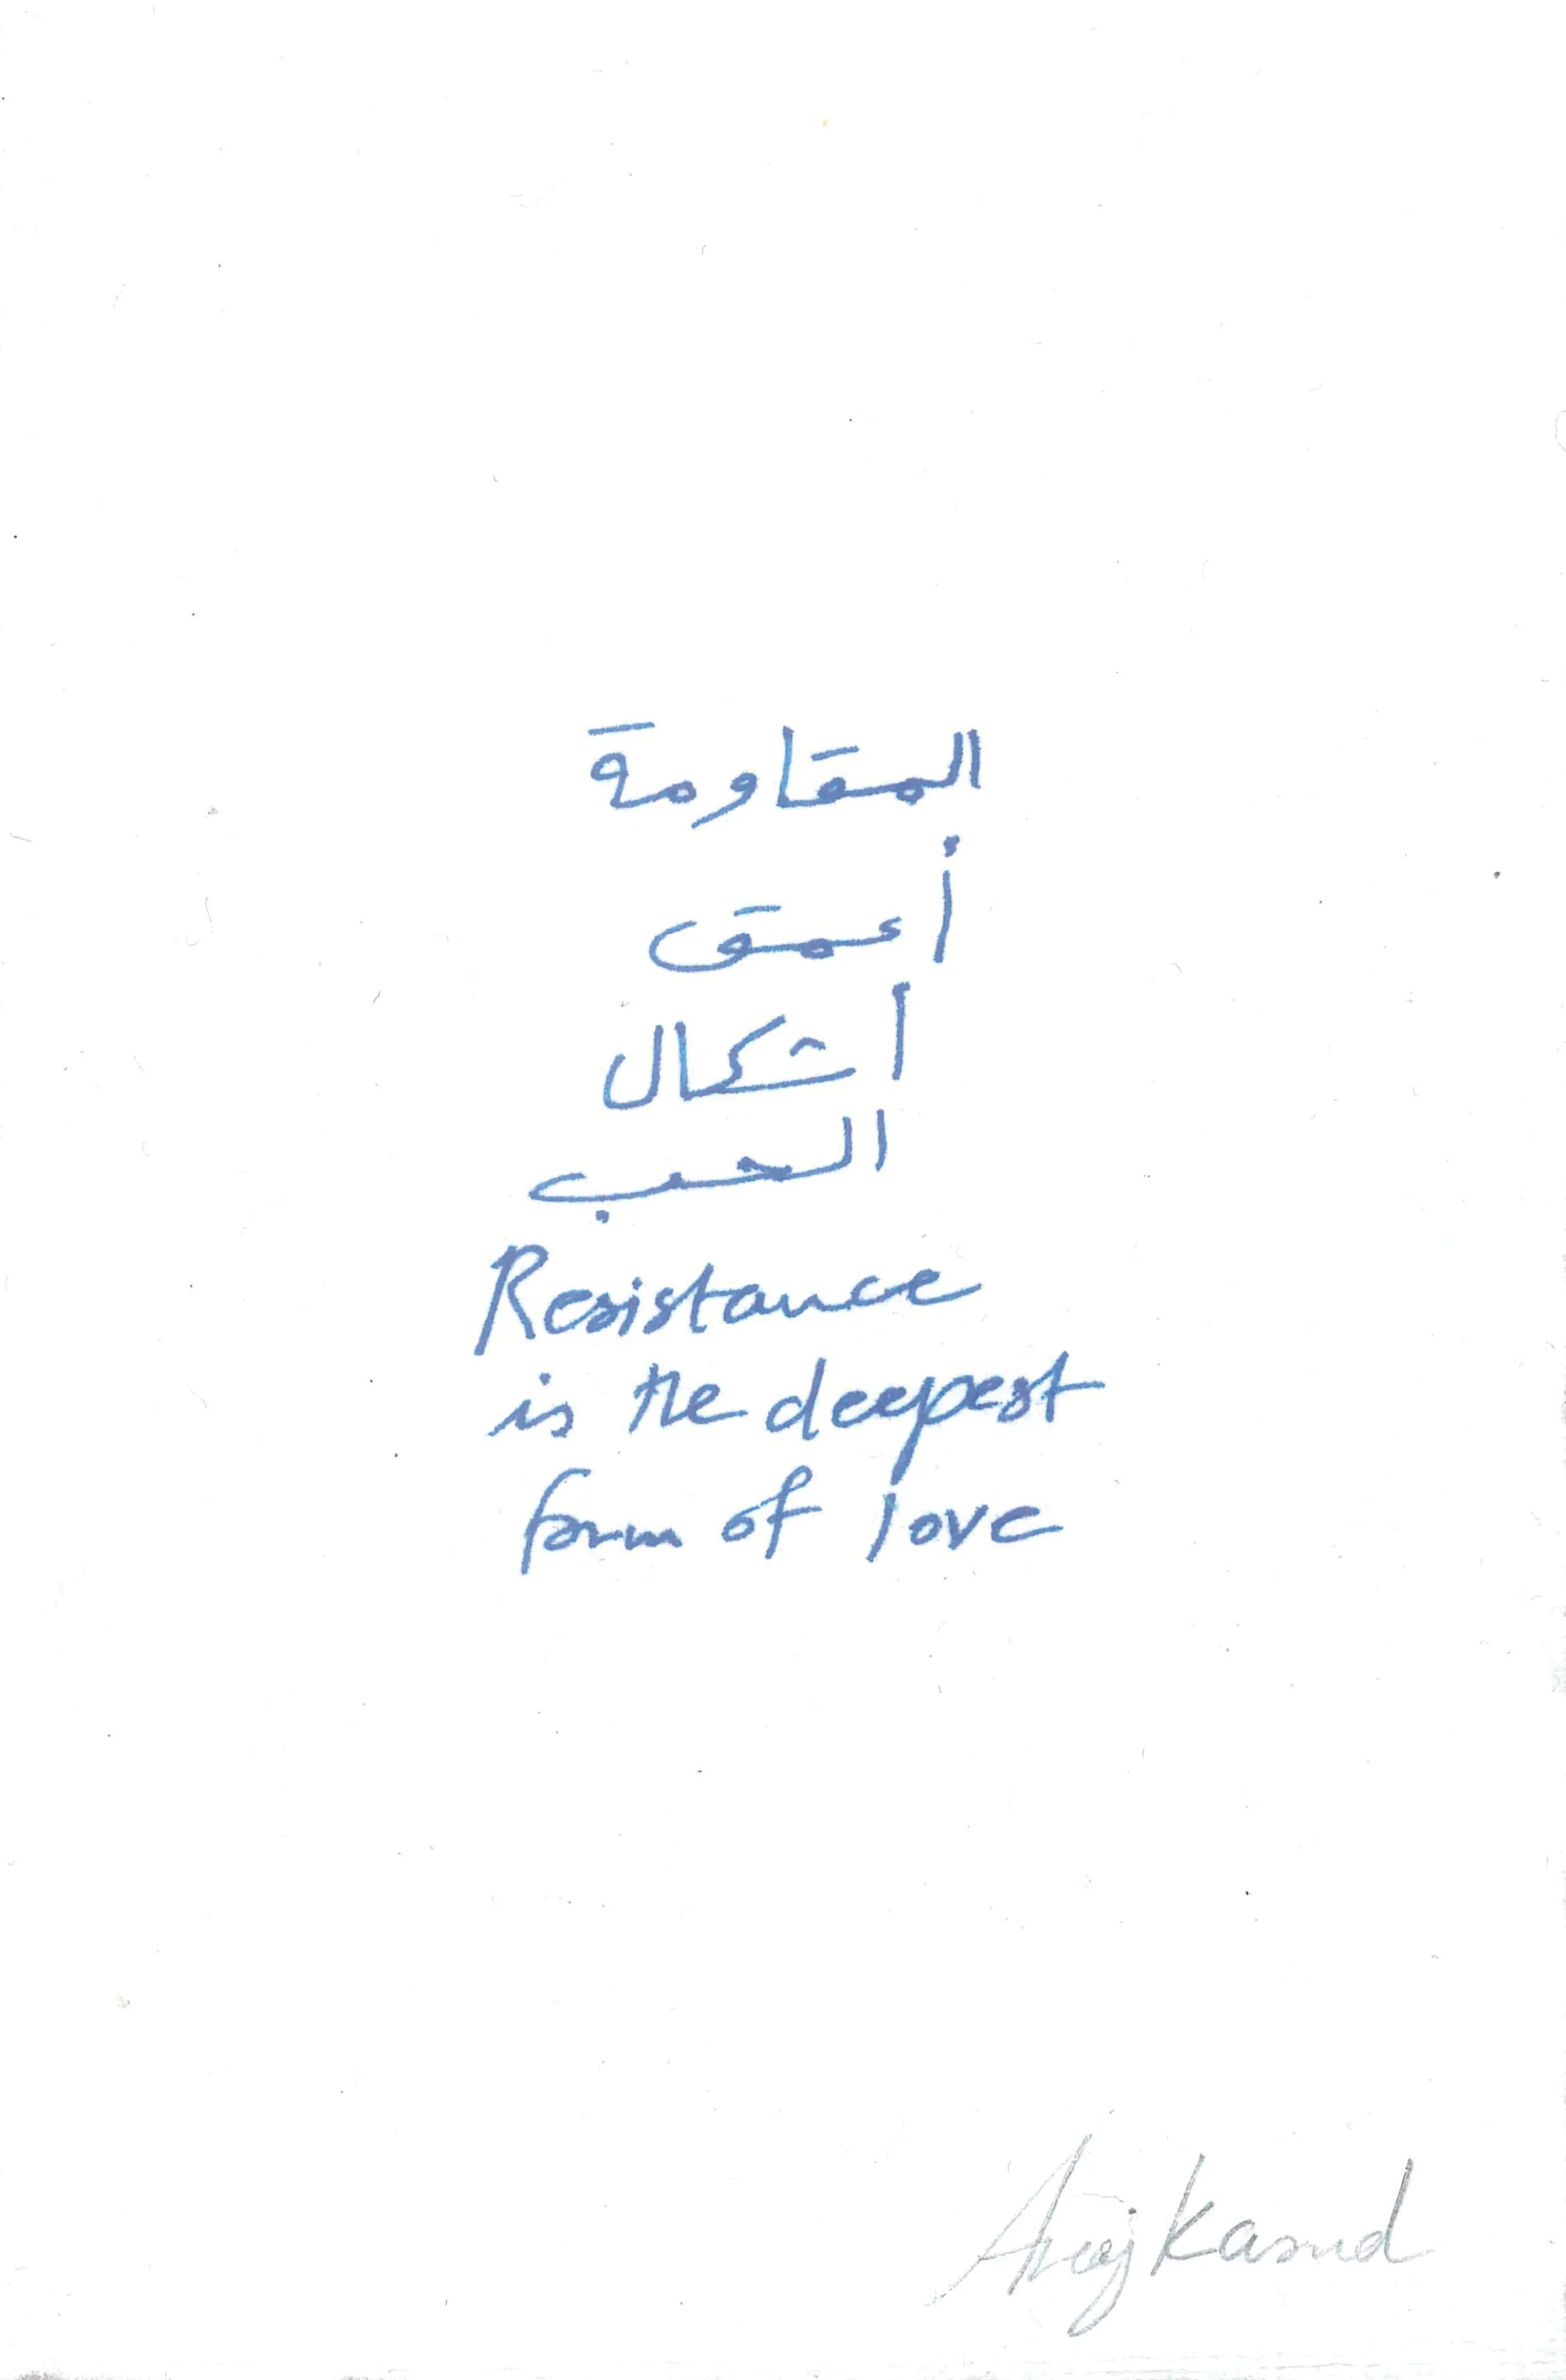 المقاومة
أعمق
أشكال
الحب
Resistance
is the deepest
form of love
Areej Kaoud